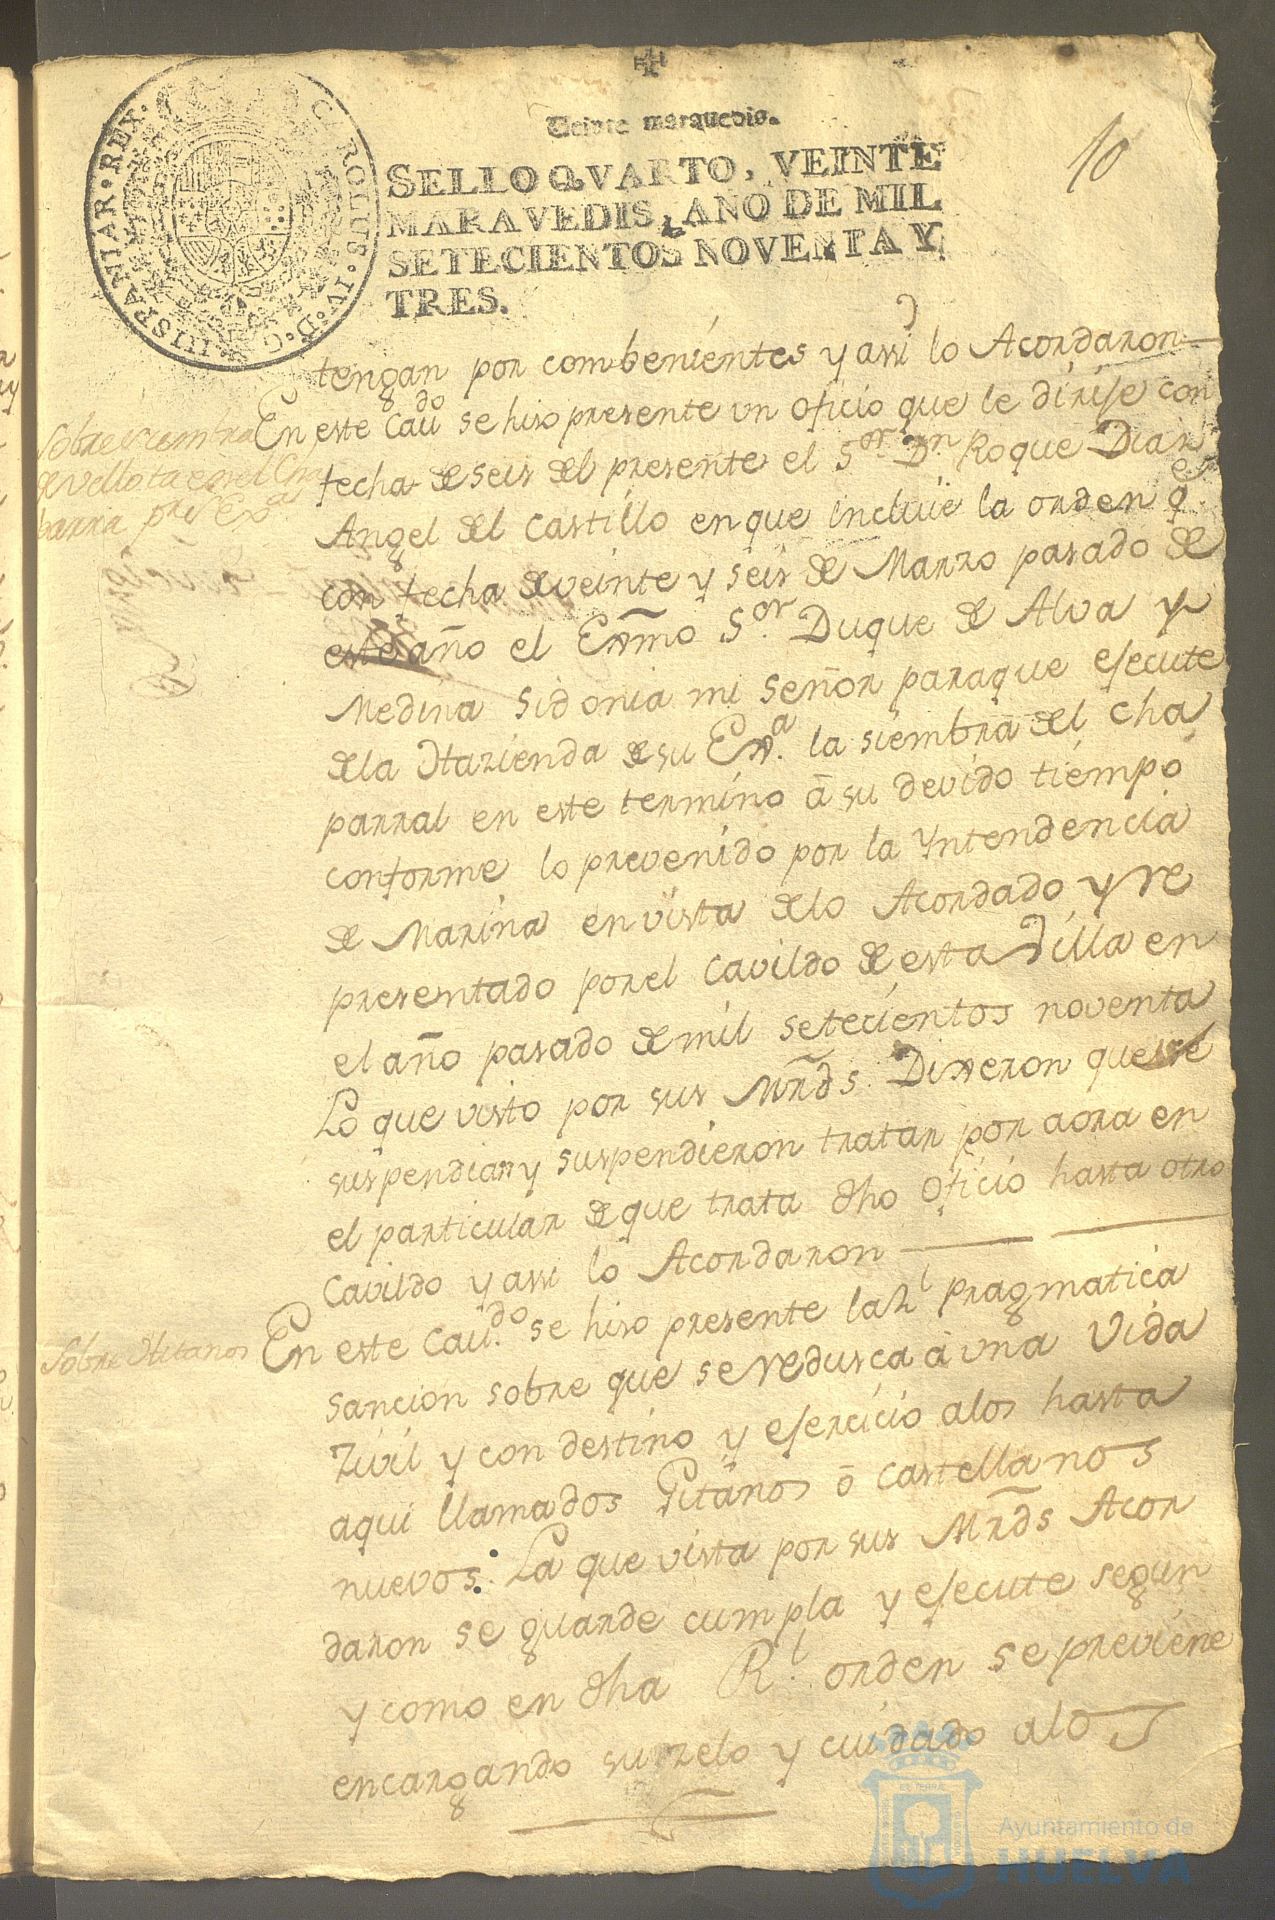 Veinte marauedis.
10
SELLO QVARTO, VEINTE
MARAVEDIS, AÑO DE MIL
SETECIENTOS NOVENTA Y
TRES.
CAROLUS·IV·D·G·HISPANIAR·REX·
tengan por combenientes y assi lo Acordaron
Sobre siembra
de vellota en el Cha
parral pr. su Exa
En este Caudo se hiso presente un oficio que le dirije con
fecha de seis del presente el Sor. Dn. Roque Diar
Angel del Castillo en que incluie la orden qe
con fecha de veinte y seis de Marzo pasado de
este año el Exmo Sor. Duque de Alva y
Medina Sidonia mi señor para que ejecute
de la Hazienda de su Exa. la siembra del Cha
parral en este termino â su devido tiempo
conforme lo prevenido por la Yntendencia
de Marina en vista de lo Acordado y re
presentado por el Cavildo de esta Villa en
el año pasado de mil setecientos noventa
Lo que visto por sus Mrds. Dixeron que se
suspendian y suspendieron tratar por aora en
el particular de que trata dho oficio hasta otro
Cavildo y assi lo Acordaron
Sobre Jitanos
En este Caudo. se hiso presente la Rl. pragmatica
sancion sobre que se redusca à una Vida
Zivil y con destino y ejercicio a los hasta
aqui llamados Gitanos ô castellanos
nuevos: La que vista por sus Mrds Acor
daron se guarde cumpla y ejecute segun
y como en dha Rl. orden se previene
encargando su zelo y cuidado a los
Ayuntamiento de
HUELVA